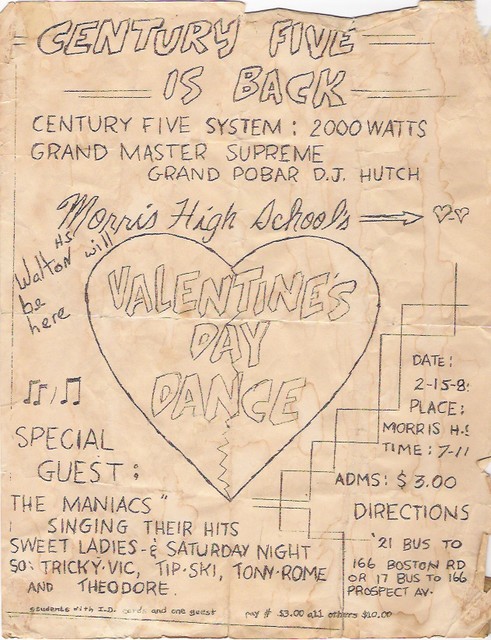 CENTURY FIVE
IS BACK
CENTURY FIVE SYSTEM: 2000 WATTS
GRAND MASTER SUPREME
GRAND POBAR D.J. HUTCH
Morris High School's
Walton HS will
be
here
VALENTINE'S
DAY
DANCE
DATE:
2-15-8
PLACE:
MORRIS H.S
TIME: 7-11
ADMS: $3.00
SPECIAL
GUEST:
THE MANIACS"
SINGING THEIR HITS
SWEET LADIES - & SATURDAY NIGHT
SO: TRICKY-VIC, TIP-SKI, TONY-ROME
AND THEODORE.
DIRECTIONS
'21 BUS TO
166 BOSTON RD
OR 17 BUS TO 166
PROSPECT AV.
students with I.D. cards and one guest pay $3.00 all others $10.00